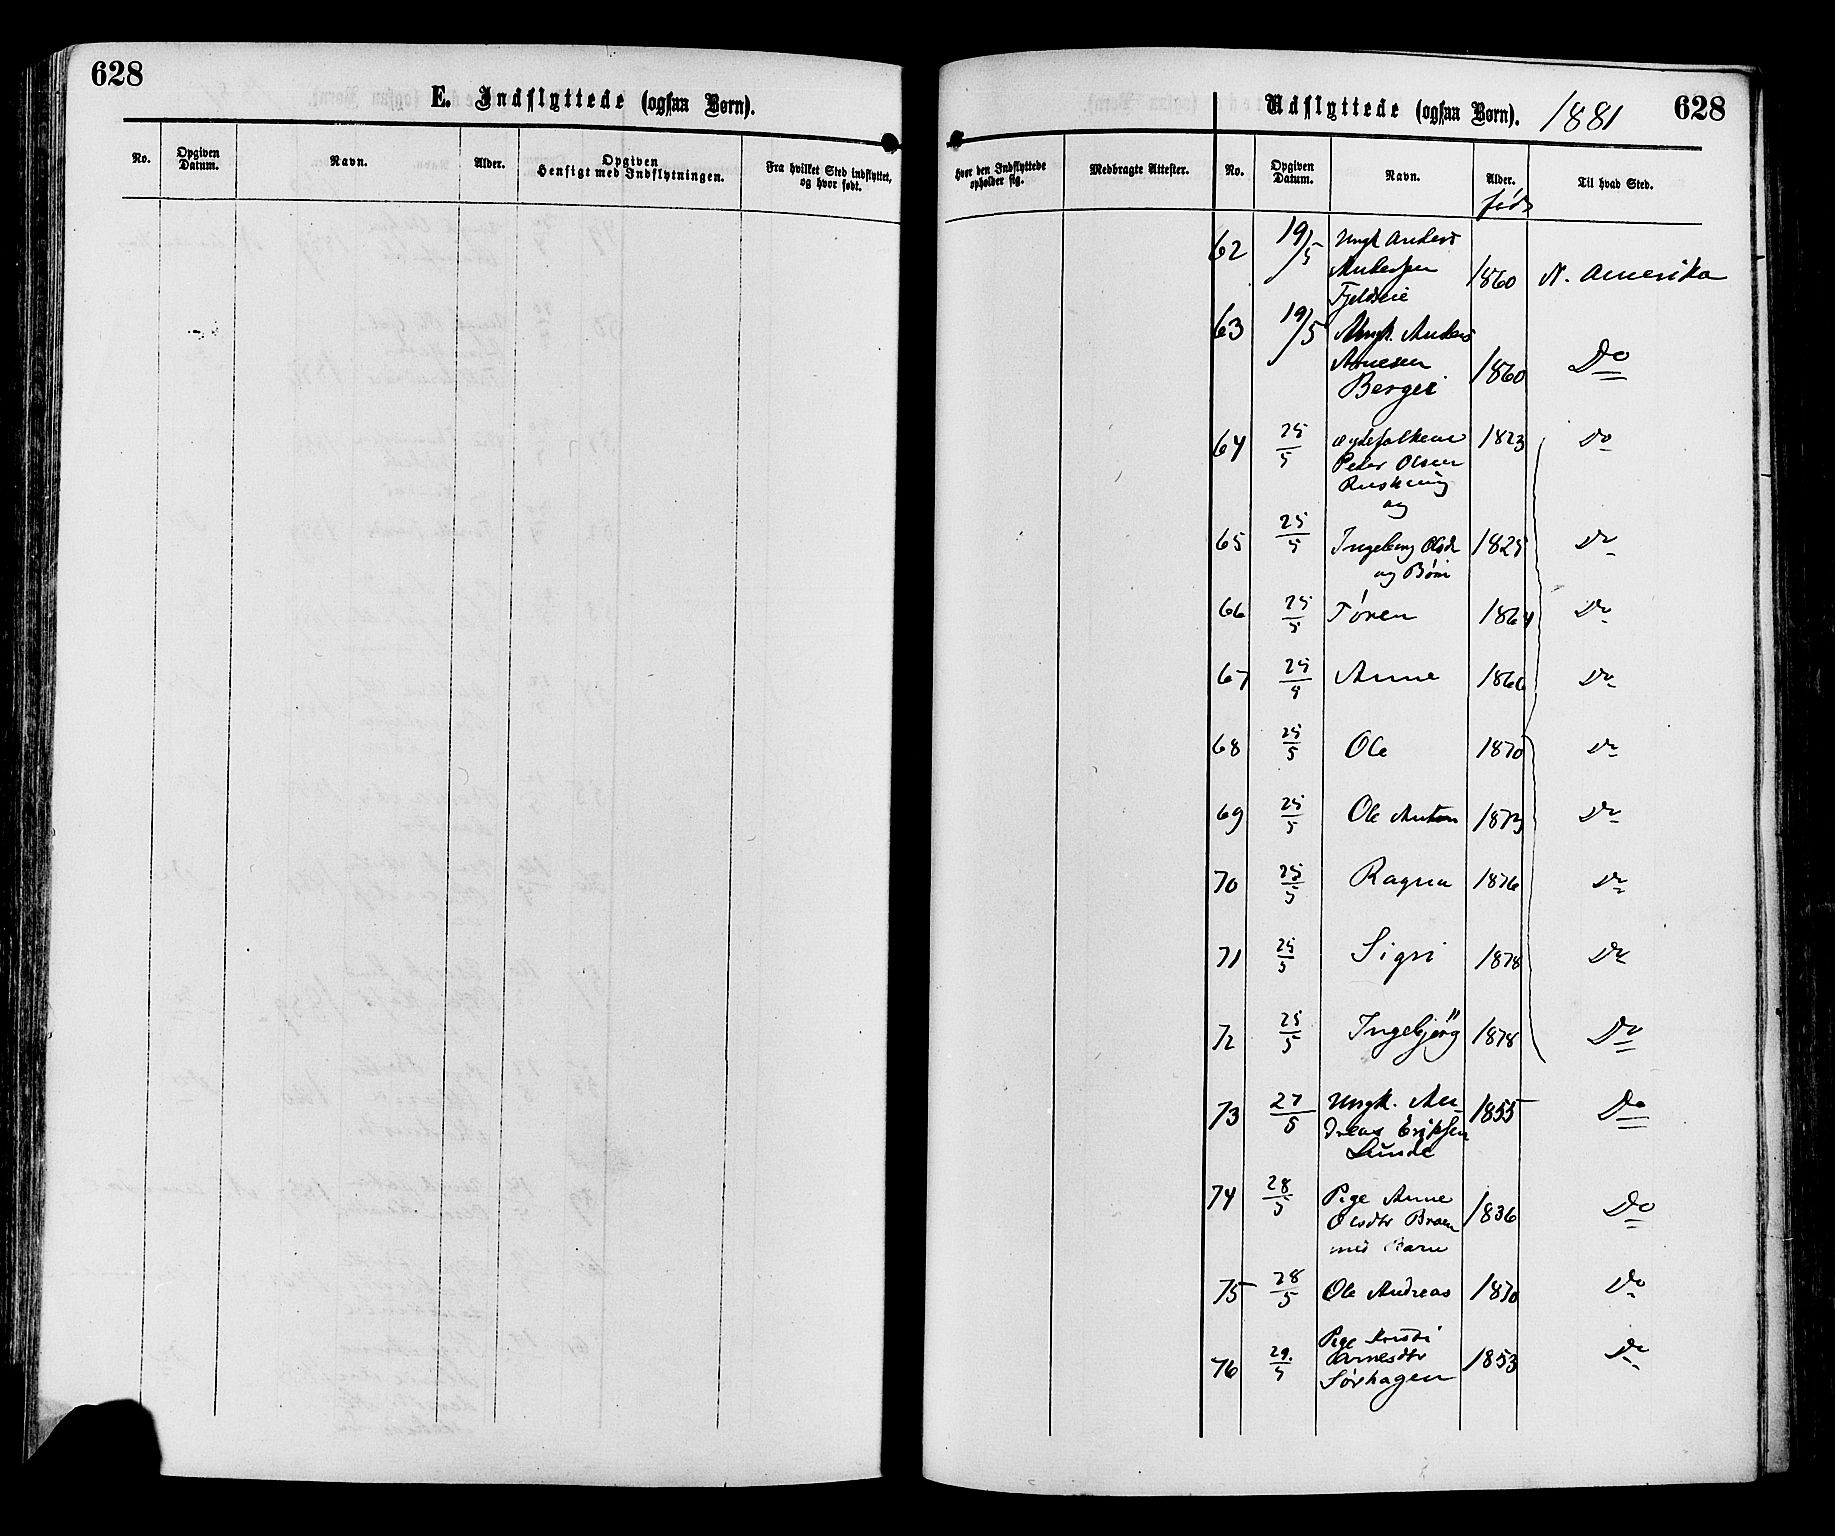 628
E. Indflyttede (ogsaa Børn).
No. Opgiven Datum. Navn. Alder. Opgiven Hensigt med Indflytningen. Fra hvilket Sted indflyttet, og hvor født.
Udflyttede (ogsaa Børn). 1881 628
Hvor den Indflyttede opholder sig. Medbragte Attester. No. Opgiven Datum. Navn. Alder. Til hvad Sted.
født
62 19/5 Ungk Anders
Andersen 1860 N. Amerika
Fjeldseie
63 19/5 Ungk. Anders
Arnesen 1860 Do
Bergei
64 25/5 Ægtefolkene 1823 Do
Peder Olsen
og
65 25/5 Ingeborg Olsdr 1825 Do
og Børn
66 25/5 Tóren 1864 Do
67 25/5 Anne 1866 Do
68 25/5 Ole 1870 Do
69 25/5 Ole Anton 1873 Do
70 25/5 Ragna 1876 Do
71 25/5 Sigri 1878 Do
72 25/5 Ingebjörg 1878 Do
73 27/5 Ungk. An- 1855 Do
dreas Eriksen
Lunde
74 28/5 Pige Anne
Olsdtr Braen 1836 Do
med Barn
75 28/5 Ole Andreas 1870 Do
76 29./5 Pige Kristi
Arnesdtr 1853 Do
Sørhagen